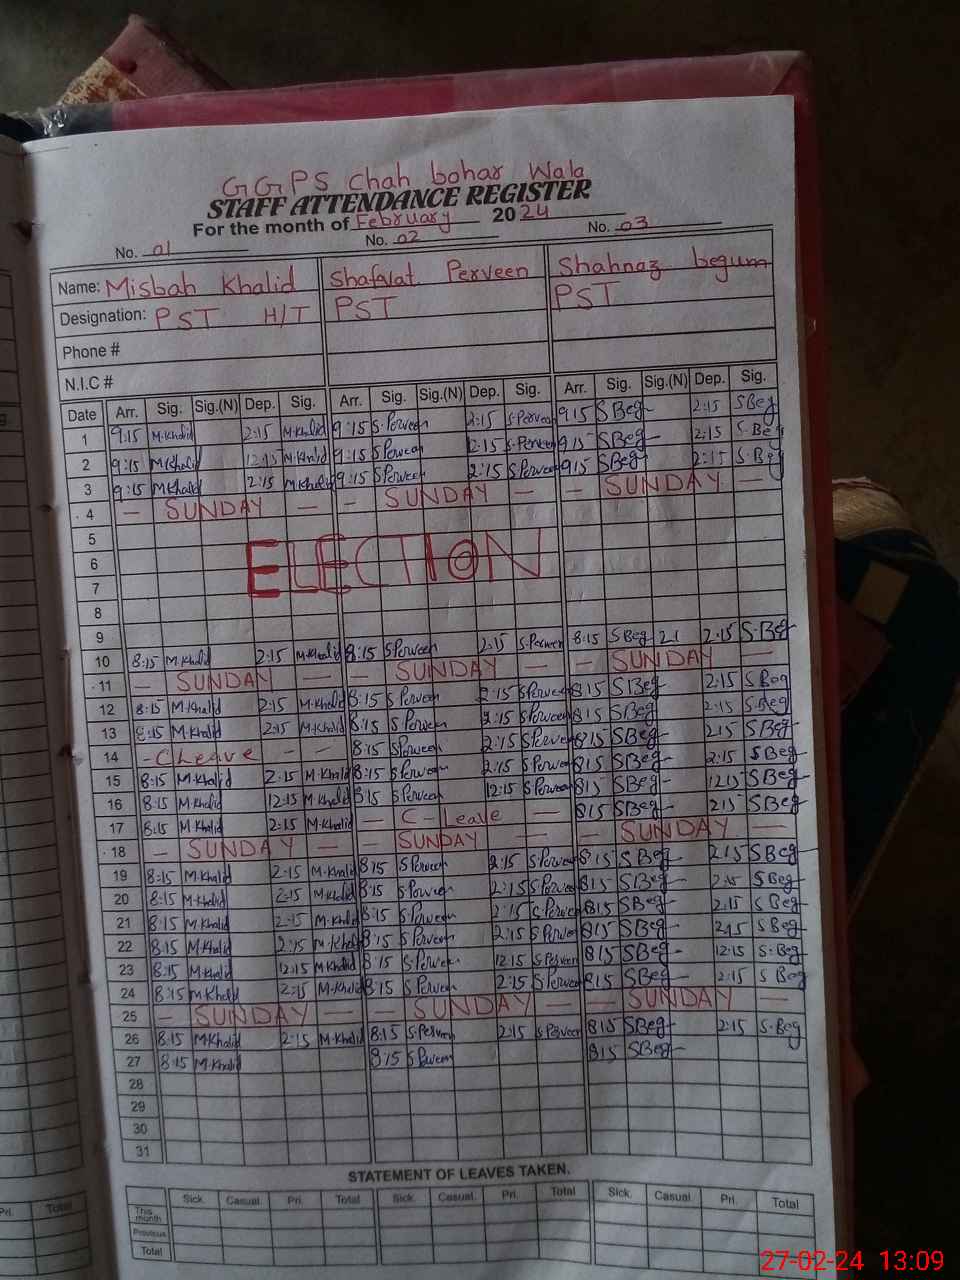 GGPS Chah bohar Wala
STAFF ATTENDANCE REGISTER
For the month of February 2024
No. 01 No. 02 No. 03
Name: Misbah Khalid Shafqat Perveen Shahnaz begum
Designation: PST H/T PST PST
Phone #
N.I.C #
Date Arr. Sig. Sig.(N) Dep. Sig. Arr. Sig. Sig.(N) Dep. Sig. Arr. Sig. Sig.(N) Dep. Sig.
1 9:15 M.Khalid 2:15 M.Khalid 9:15 S.Perveen 2:15 S.Perveen 9:15 SBeg 2:15 SBeg
2 9:15 M.Khalid 12:15 M.Khalid 9:15 S.Perveen 12:15 S.Perveen 9:15 SBeg 2:15 S.Beg
3 9:15 M.Khalid 2:15 M.Khalid 9:15 S.Perveen 2:15 S.Perveen 9:15 SBeg 2:15 S.Beg
4 — SUNDAY — — SUNDAY — — SUNDAY —
5
6 ELECTION
7
8
9
10 8:15 M.Khalid 2:15 M.Khalid 8:15 S.Perveen 2:15 S.Perveen 8:15 SBeg 2:15 S.Beg
11 — SUNDAY — — SUNDAY — — SUNDAY —
12 8:15 M.Khalid 2:15 M.Khalid 8:15 S.Perveen 2:15 S.Perveen 815 SBeg 2:15 S Beg
13 8:15 M.Khalid 2:15 M.Khalid 8:15 S.Perveen 2:15 S.Perveen 815 SBeg 2:15 S.Beg
14 - C Leave - - 8:15 S.Perveen 2:15 S.Perveen 815 SBeg 215 SBeg
15 8:15 M.Khalid 2:15 M.Khalid 8:15 S.Perveen 2:15 S.Perveen 815 SBeg 2:15 SBeg
16 8:15 M.Khalid 12:15 M.Khalid 8:15 S.Perveen 12:15 S.Perveen 815 SBeg 1215 SBeg
17 8:15 M.Khalid 2:15 M.Khalid — C-Leave — 815 SBeg 215 SBeg
18 — SUNDAY — — SUNDAY — — SUNDAY —
19 8:15 M.Khalid 2:15 M.Khalid 8:15 S.Perveen 2:15 S.Perveen 815 SBeg 215 SBeg
20 8:15 M.Khalid 2:15 M.Khalid 8:15 S.Perveen 2:15 S.Perveen 815 SBeg 2:15 SBeg
21 8:15 M.Khalid 2:15 M.Khalid 8:15 S.Perveen 2:15 S.Perveen 815 SBeg 2:15 S Beg
22 8:15 M.Khalid 2:15 M.Khalid 8:15 S.Perveen 2:15 S.Perveen 815 SBeg 2:15 S.Beg
23 8:15 M.Khalid 12:15 M.Khalid 8:15 S.Perveen 12:15 S.Perveen 815 SBeg 12:15 S.Beg
24 8:15 M.Khalid 2:15 M.Khalid 8:15 S.Perveen 2:15 S.Perveen 815 SBeg 2:15 S Beg
25 — SUNDAY — — SUNDAY — — SUNDAY —
26 8:15 M.Khalid 2:15 M.Khalid 8:15 S.Perveen 2:15 S.Perveen 815 SBeg 2:15 S.Beg
27 8:15 M.Khalid 8:15 S.Perveen 815 SBeg
28
29
30
31
STATEMENT OF LEAVES TAKEN.
Sick. Casual. Pri. Total Sick. Casual. Pri. Total Sick. Casual Pri. Total
This month
Previous
Total
Pri. Total
27-02-24 13:09